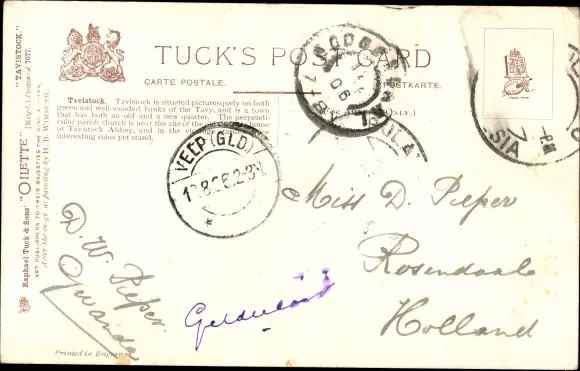 TUCK'S POST CARD
CARTE POSTALE.
POSTKARTE.
Tavistock. Tavistock is situated picturesquely on both
green and well-wooded banks of the Tavy, and is a town
that has both an old and a new quarter. The perpendi-
cular parish church is near the site of the old
house
of Tavistock Abbey, and in the
interesting ruins yet stand.
ONLY.)
VEEP (GLD.)
Miss D. Pieper
Rosendaale
Holland
Gelderland
D. W. Pieper.
Raphael Tuck & Sons' "OILETTE" (Regd.) Postcard 7077. "TAVISTOCK."
ART PUBLISHERS TO THEIR MAJESTIES THE KING & QUEEN.
After the original painting by H. B. WIMBUSH.
Printed in England